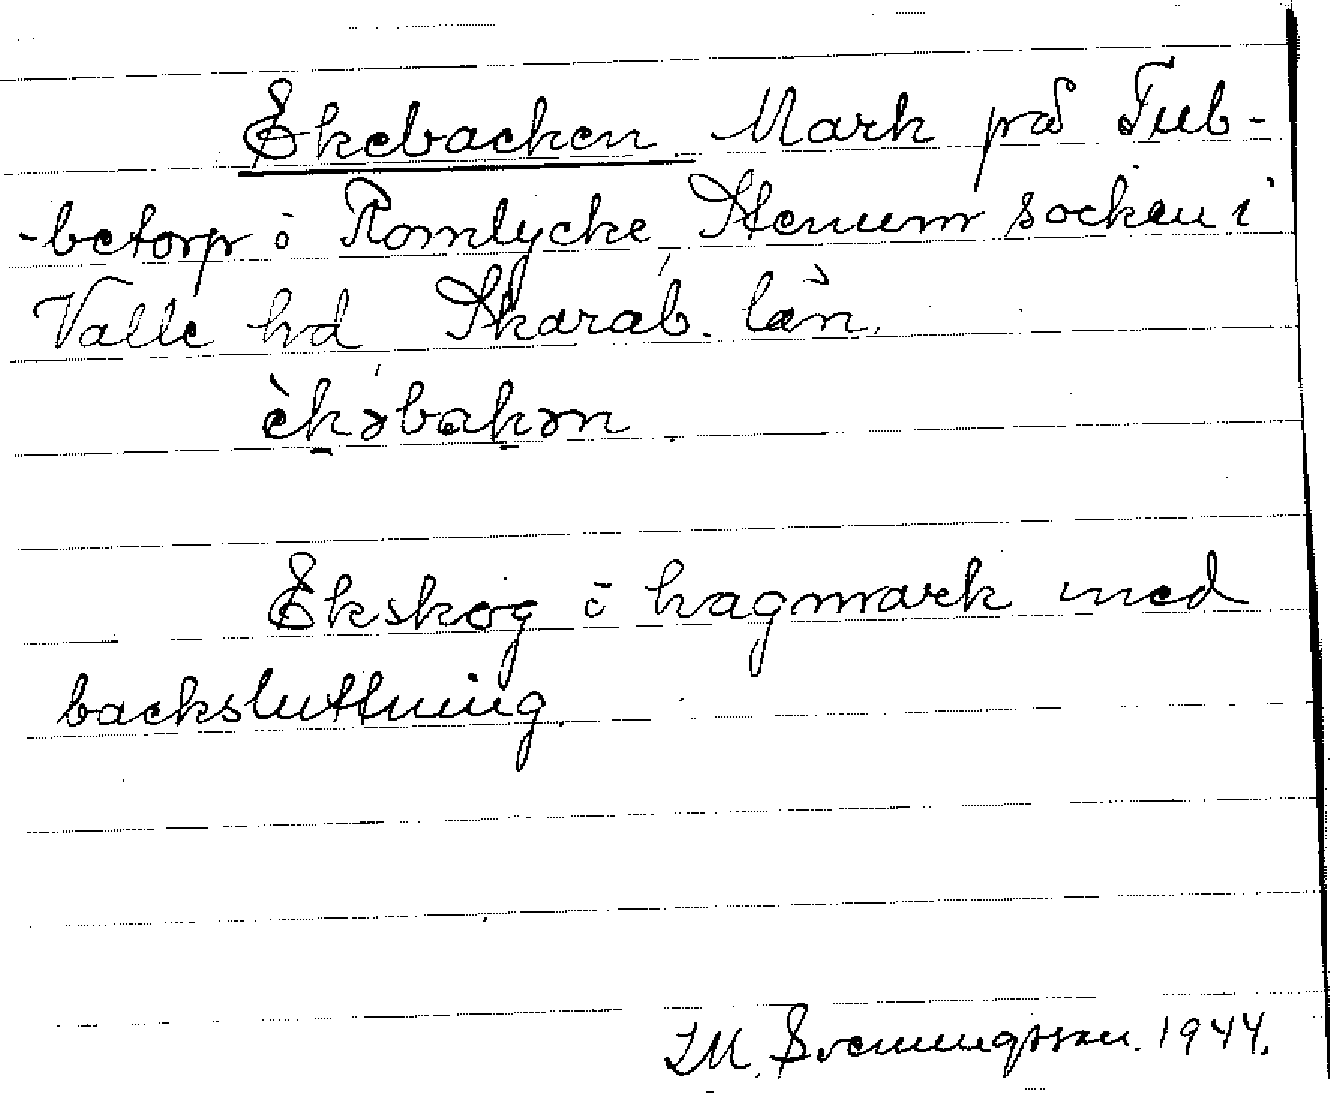 Ekebacken Mark på Tub-
-betorp i Romlycke, Stenum socken i
Valle hd Skarab. län.
èkəbakən
Ekskog i hagmark med
backsluttning.
I.M. Svenningsson. 1944.